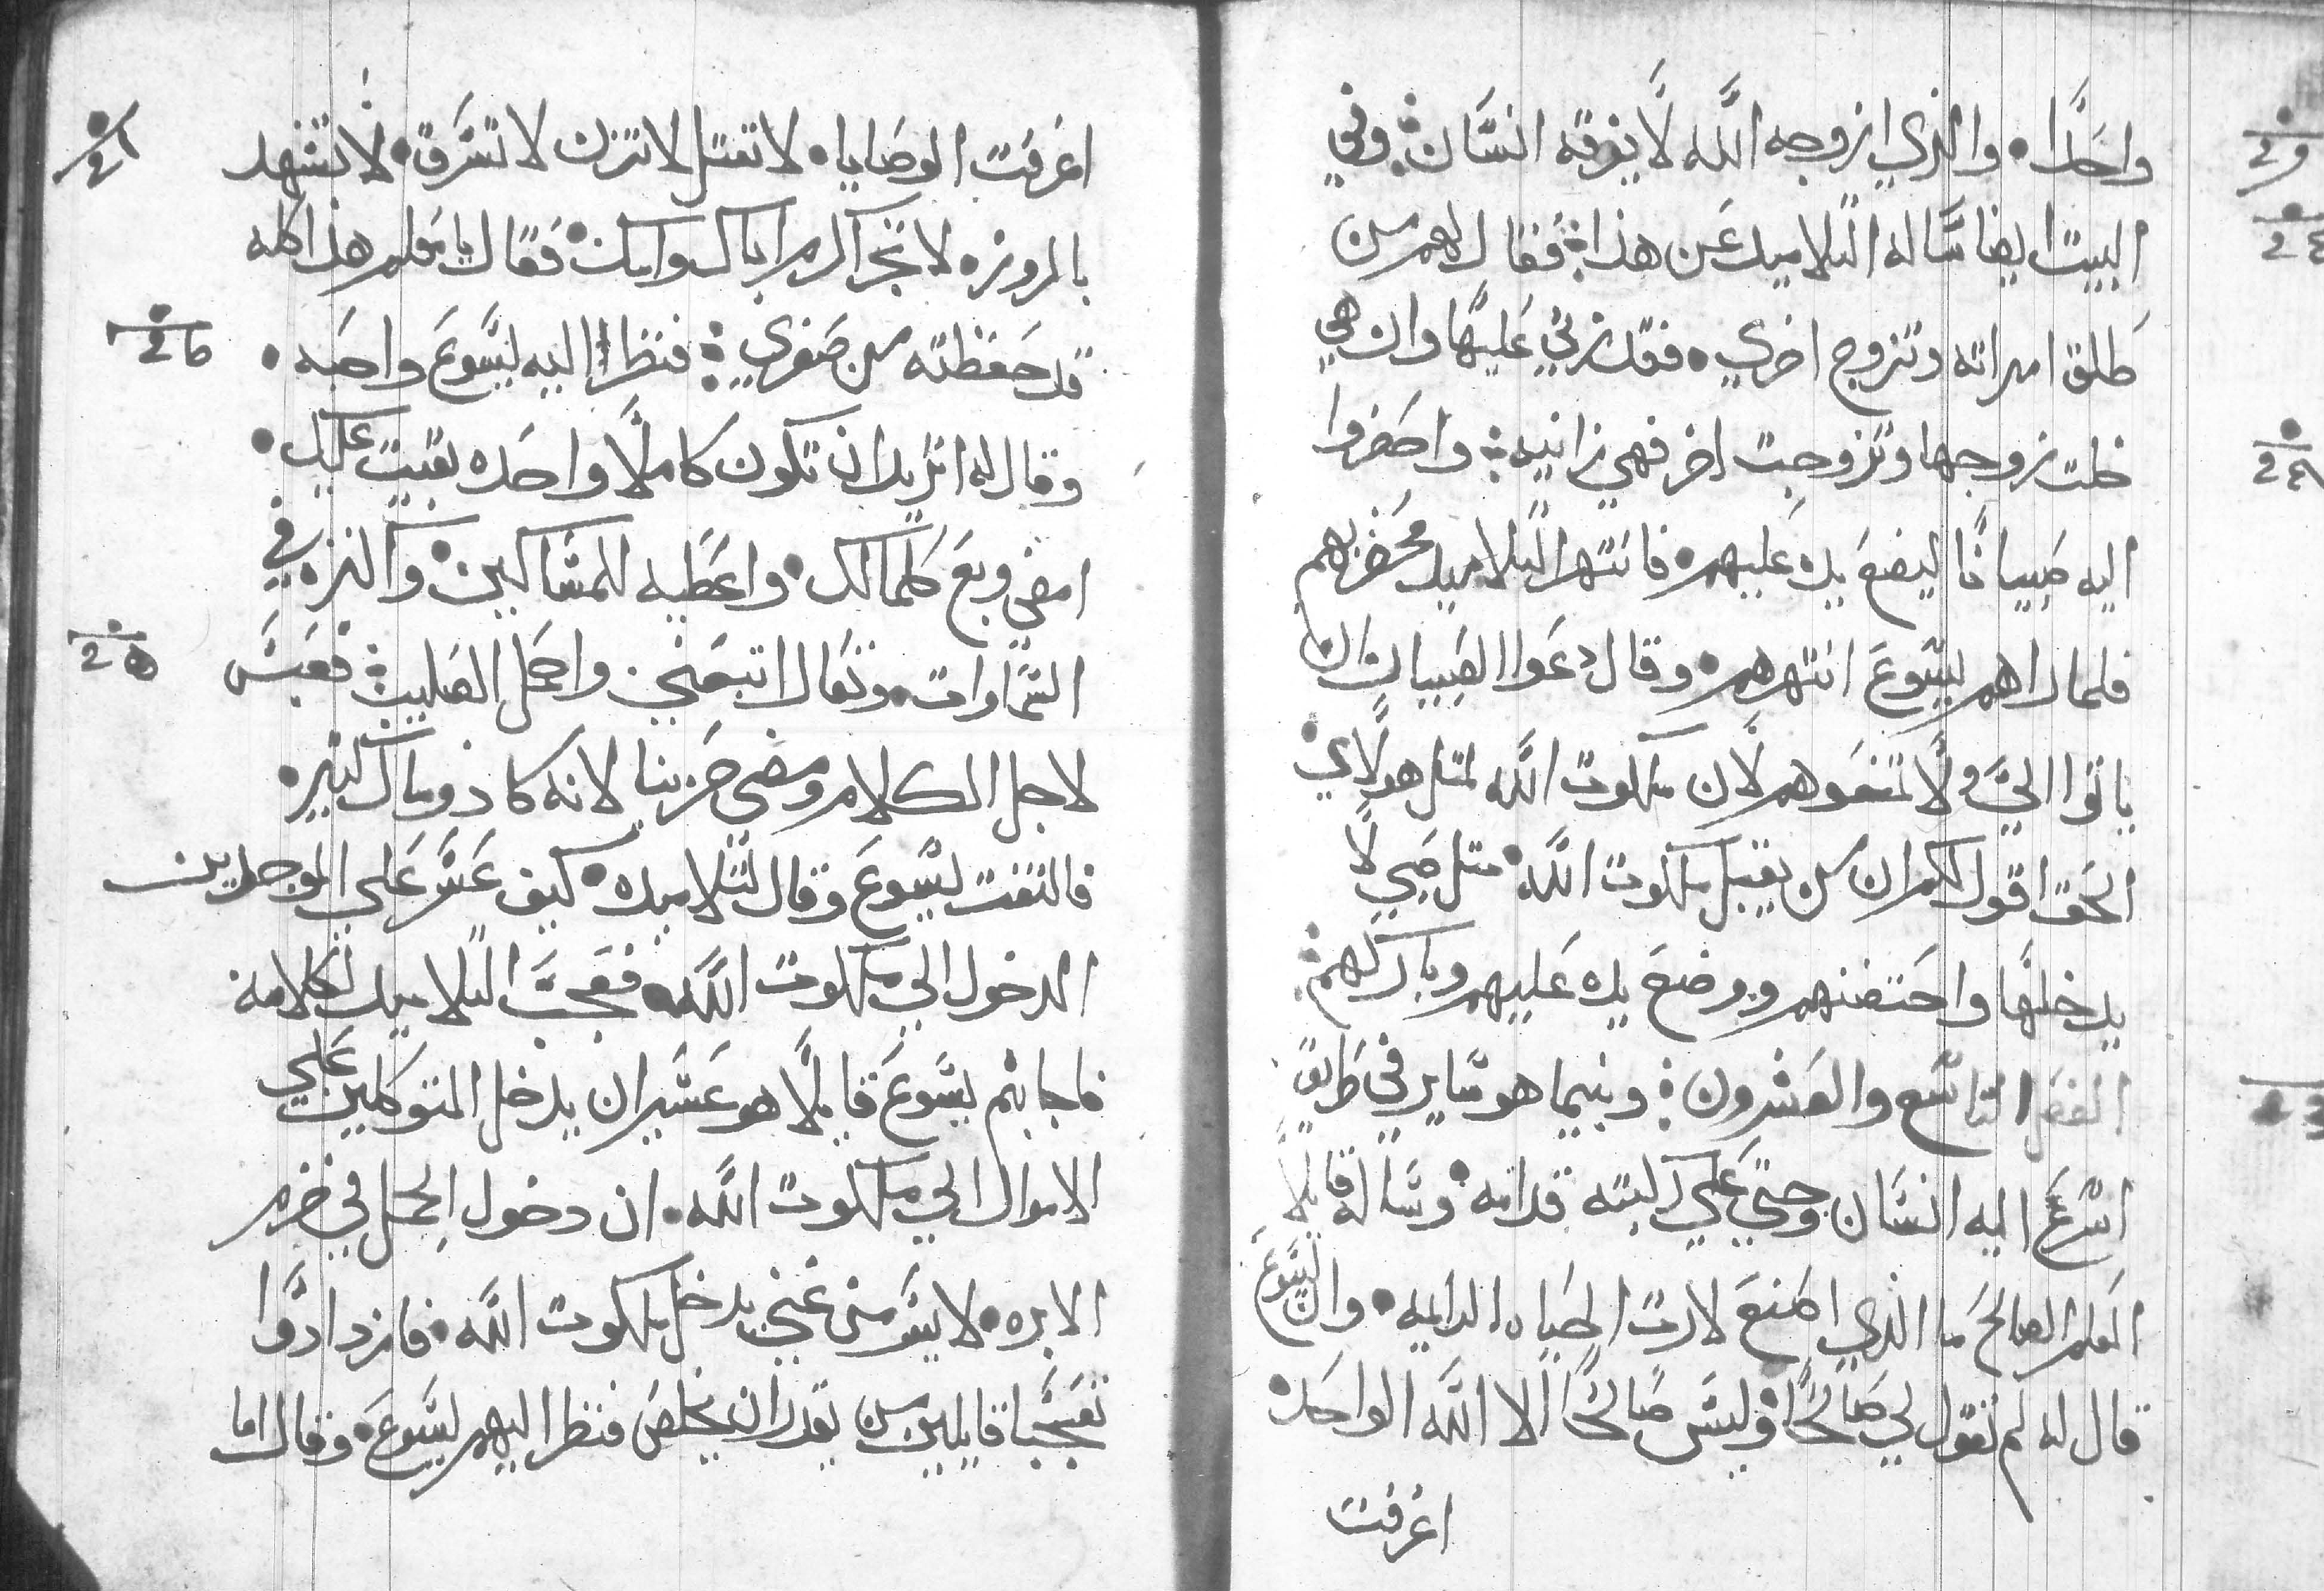 واحدًا • والذي ازوجه الله لا يفرقه انسان ⁘ وفي
البيت ايضا ساله التلاميد عن هذا ⁘ فقال لهم من
طلق امراته وتزوج اخري • فقد زني عليها وان هي
خلت زوجها وتزوجت اخر فهي زانيه ⁘ واحضروا
اليه صبيانًا ليضع يده عليهم • فانتهر التلاميد محضريهم
فلما راهم يسوع انتهرهم • وقال دعوا الصبيان ان
ياتوا اليّ ولا تمنعوهم لان ملكوت الله لمثل هولاي •
الحق اقول لكم ان من يقبل ملكوت الله • مثل صبي لا
يدخلها واحتضنهم ووضع يده عليهم وباركهم ⁘
الفصل التاسع والعشرون ⁘ وبينما هو ساير في طريق
اسرع اليه انسان وجتي علي ركبته قدامه • وساله قايلًا
المعلم الصالح ما الذي اصنع لارت الحياه الدايمه • وان يسوع
قال له لم تقول لي صالحًا • وليس صالحًا الا الله الواحد •
اعرفت
اعرفت الوصايا • لا تقتل لا تزن لا تسرق • لا تشهد
بالمروزه لا تجر اكرم اباك وامك • فقال يا معلم هذا كله
قد حفظته من صغري ⁘ فنظر اليه يسوع واحبه •
وقال له اتريد ان تكون كاملًا واحده بقيت عليك •
امضي وبع كلمالك • واعطيه للمساكين • واكنزه في
السماوات • وتعال اتبعني واحمل الصليب ⁘ فعبس
لاجل الكلام ومضي حزينا لانه كا ذو مال كتير •
فالتفت يسوع وقال لتلاميده • كيف عسر علي الموجدين
الدخول الي ملكوت الله • فعجب التلاميد لكلامه
فاجابهم يسوع قايلًا هو عسير ان يدخل المتوكلين علي
الاموال الي ملكوت الله • ان دخول الجمل في خرم
الابره • لايسر من غني يدخل ملكوت الله • فازدادوا
تعجبا قايلين من يقدر ان يخلص فنظر اليهم يسوع • وقال اما